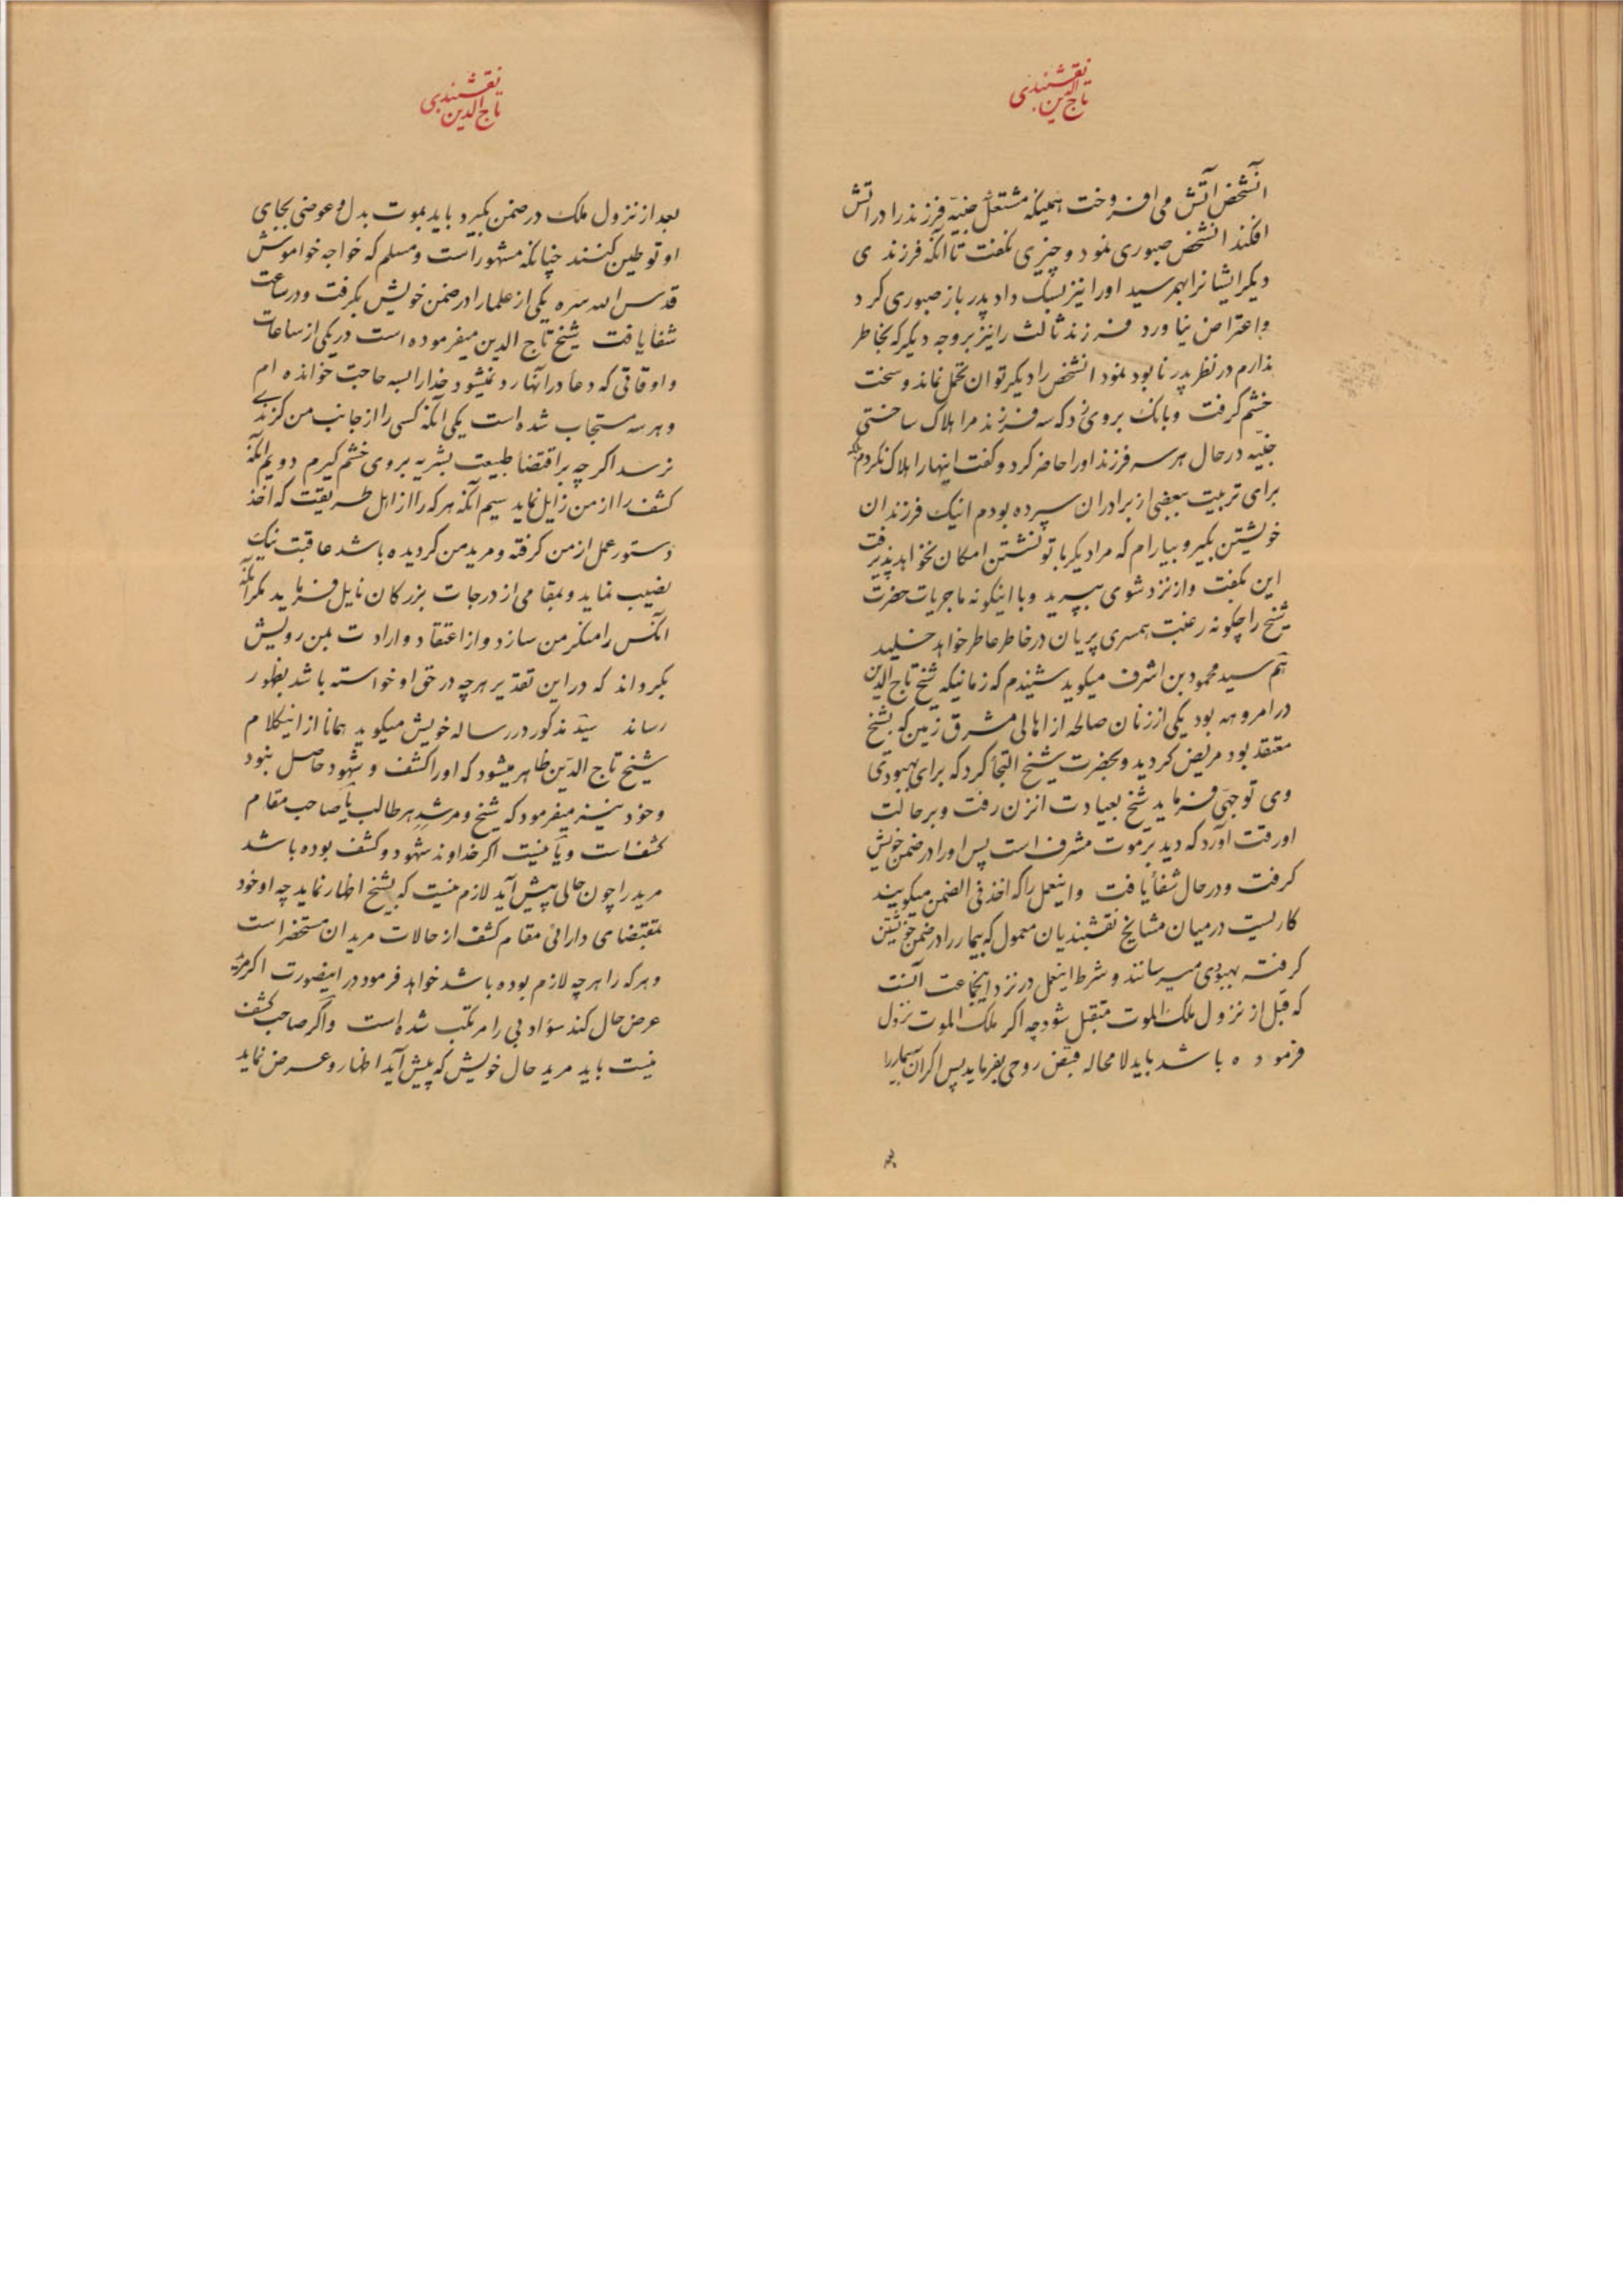 نقشبندی
تاج الدین
آنشخص آتش می افروخت همینکه مشتعل جنیه فرزند را در آتش
افکند انشخص صبوری نمود و چیزی نگفت تا آنکه فرزند ی
دیگر ایشانرا بهمرسید اورا نیز بسگ داد پدر باز صبوری کرد
و اعتراض نیاورد فرزند ثالث را نیز بروجه دیگر که بخاطر
ندارم در نظر پدر نابود نمود انشخص را دیگر توان تحمل نماند و سخت
خشم گرفت و بانگ بروی زد که سه فرزند مرا هلاک ساختی
جنیه در حال هر سه فرزند اورا حاضر کرد و گفت اینها را هلاک نکردم
برای تربیت ببعضی از برادران سپرده بودم اینک فرزندان
خویشتن بگیر و بیارام که مرا دیگر با تو نشستن امکان نخواهد پذیرفت
این بگفت و از نزد شوی بپرید و با اینگونه ماجریات حضرت
شیخ را چگونه رغبت همسری پریان در خاطر عاطر خواهد خلید
هم سید محمود بن اشرف میگوید شنیدم که زمانیکه شیخ تاج الدین
در امروهه بود یکی از زنان صالحه از اهالی مشرق زمین که بشیخ
معتقد بود مریض گردید و بحضرت شیخ التجا کرد که برای بهبودی
وی توجهی فرماید شیخ بعیادت انزن رفت و بر حالت
او رقت آورد که دید بر موت مشرف است پس اورا در ضمن خویش
گرفت و در حال شفا یافت و اینعمل را که اخذ فی الضمن میگویند
کاریست در میان مشایخ نقشبندیان معمول که بیمار را در ضمن خویشتن
گرفته بهبودی میرسانند و شرط اینعمل در نزد اینجماعت آنست
که قبل از نزول ملک الموت متقبل شود چه اگر ملک الموت نزول
فرموده باشد باید لامحاله قبض روحی بفرماید پس اگر آن بیمار را
نقشبندی
تاج الدین
بعد از نزول ملک در ضمن بگیرد باید بموت بدل و عوضی بجای
او توطین کنند چنانکه مشهور است و مسلم که خواجه خواموش
قدس الله سره یکی از علما را در ضمن خویش بگرفت و در ساعت
شفا یافت شیخ تاج الدین میفرموده است در یکی از ساعات
و اوقاتی که دعا در آنها رد نمیشود خدا را بسه حاجت خوانده ام
و هر سه مستجاب شده است یکی آنکه کسی را از جانب من گزندے
نرسد اگر چه بر اقتضا طبیعت بشریه بروی خشم گیرم دویم آنکه
کشف را از من زایل نماید سیم آنکه هر که را از اهل طریقت که اخذ
دستور عمل از من گرفته و مرید من گردیده باشد عاقبت نیک
نصیب نماید و بمقامی از درجات بزرگان نایل فرماید مگر آنکه
آنکس را منکر من سازد و از اعتقاد و ارادت بمن رویش
بگرداند که در این تقدیر هر چه در حق او خواسته باشد بظهور
رساند سید مذکور در رساله خویش میگوید همانا از اینکلام
شیخ تاج الدین ظاهر میشود که اورا کشف و شهود حاصل بنود
و خود نیز میفرمود که شیخ و مرشد هر طالب یا صاحب مقام
کشف است و یا نیست اگر خداوند شهود و کشف بوده باشد
مرید را چون حالی پیش آید لازم نیست که بشیخ اظهار نماید چه او خود
بمقتضای دارائی مقام کشف از حالات مریدان مستحضر است
و هر که را هر چه لازم بوده باشد خواهد فرمود در اینصورت اگر مرید
عرض حال کند سؤ ادبی را مرتکب شده است و اگر صاحب کشف
نیست باید مرید حال خویش که پیش آید اظهار و عرض نماید